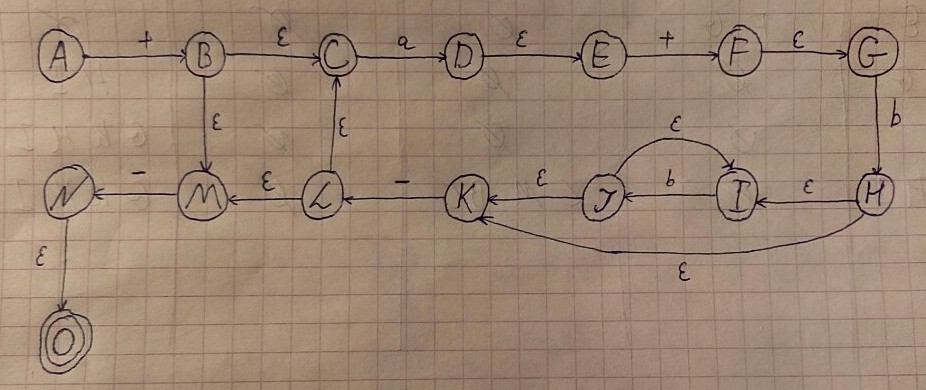 A + B ε C a D ε E + F ε G
ε ε ε b
N - M ε L - K ε J b I ε H
ε ε
O